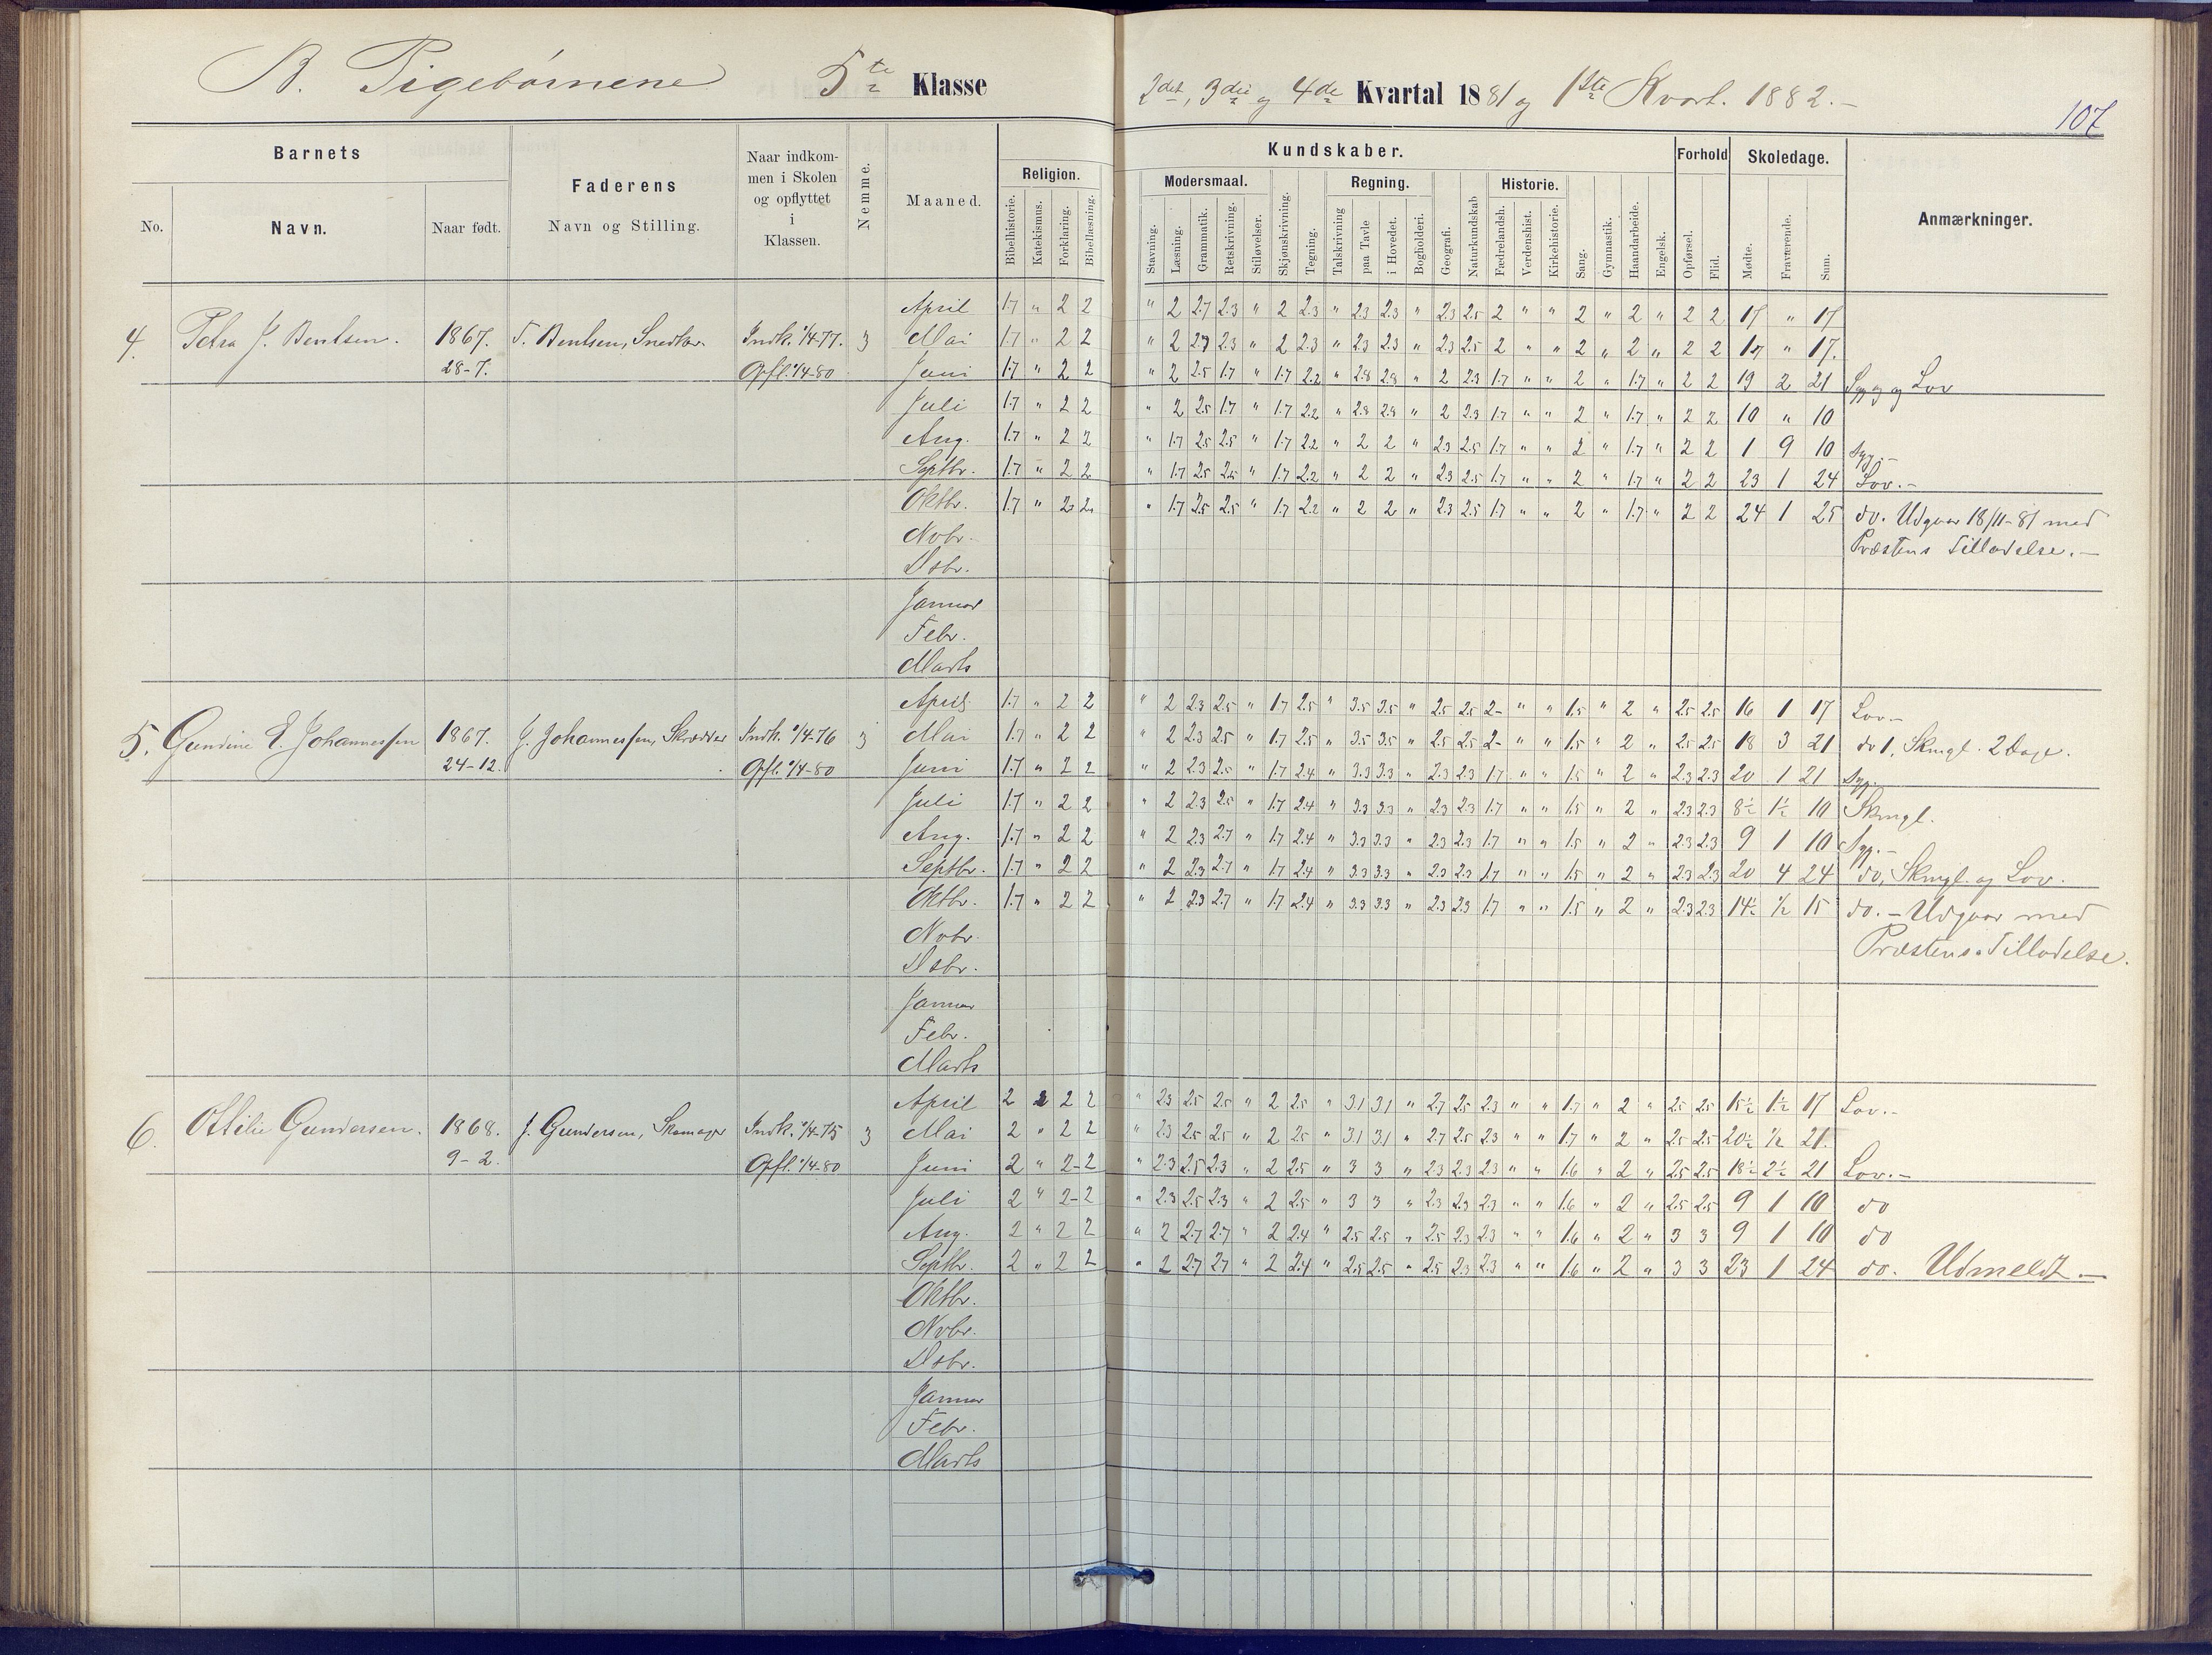 B. Pigebørnene 5te Klasse 2det, 3die og 4de Kvartal 1881 og 1ste Kvart. 1882.-
107
Barnets
Faderens
Naar indkommen i Skolen og opflyttet i Klassen.
Nemme.
Maaned.
Kundskaber.
Forhold
Skoledage.
Anmærkninger.
No. Navn. Naar født. Navn og Stilling.
Religion. Modersmaal. Regning. Historie.
Bibelhistorie. Katekismus. Forklaring. Bibellæsning. Stavning. Læsning. Grammatik. Retskrivning. Stiløvelser. Skjønskrivning. Tegning. Talskrivning paa Tavle i Hovedet. Bogholderi. Geografi. Naturkundskab Fædrelandsh. Verdenshist. Kirkehistorie. Sang. Gymnastik. Haandarbeide. Engelsk. Opførsel. Flid. Mødte. Fraværende. Sum.
April 1.7 " 2 2 " 2 2.7 2.3 " 2 2.3 " 2.3 2.3 " 2.3 2.5 2 " " 2 " 2 " 2 2 17 " 17
4. Petra J. Bentsen. 1867. T. Bentsen, Snedker. Indk. 1/4-77. 3 Mai 1.7 " 2 2 " 2 2.7 2.3 " 2 2.3 " 2.3 2.3 " 2.3 2.5 2 " " 2 " 2 " 2 2 17 " 17.
28-7. Opfl. 1/4-80 Juni 1.7 " 2 2 " 2 2.5 1.7 " 1.7 2.2 " 2.8 2.8 " 2 2.3 1.7 " " 2 " 1.7 " 2 2 19 2 21 Syg og Lov
Juli 1.7 " 2 2 " 2 2.5 1.7 " 1.7 2.2 " 2.8 2.8 " 2 2.3 1.7 " " 2 " 1.7 " 2 2 10 " 10
Aug. 1.7 " 2 2 " 1.7 2.5 2.5 " 1.7 2.2 " 2 2 " 2.3 2.5 1.7 " " 2 " 1.7 " 2 2 1 9 10 Syg.-
Septbr. 1.7 " 2 2 " 1.7 2.5 2.5 " 1.7 2.2 " 2 2 " 2.3 2.5 1.7 " " 2 " 1.7 " 2 2 23 1 24 Lov.-
Oktbr. 1.7 " 2 2 " 1.7 2.5 2.5 " 1.7 2.2 " 2 2 " 2.3 2.5 1.7 " " 2 " 1.7 " 2 2 24 1 25 do. Udgaar 18/11-81 med
Novbr. Præstens Tilladelse.-
Dsbr.
Januar
Febr.
Marts
April 1.7 " 2 2 " 2 2.3 2.5 " 1.7 2.5 " 3.5 3.5 " 2.5 2.5 2- " " 1.5 " 2 " 2.5 2.5 16 1 17 Lov.-
5. Gundine E. Johannessen 1867. J. Johannessen, Skrædder Indk. 1/4-76 3 Mai 1.7 " 2 2 " 2 2.3 2.5 " 1.7 2.5 " 3.5 3.5 " 2.5 2.5 2- " " 1.5 " 2 " 2.5 2.5 18 3 21 do 1, Skmgl. 2 Dage.
24-12. Opfl. 1/4-80 Juni 1.7 " 2 2 " 2 2.3 2.5 " 1.7 2.4 " 3.3 3.3 " 2.3 2.3 1.7 " " 1.5 " 2 " 2.3 2.3 20 1 21 Syg.
Juli 1.7 " 2 2 " 2 2.3 2.5 " 1.7 2.4 " 3.3 3.3 " 2.3 2.3 1.7 " " 1.5 " 2 " 2.3 2.3 8½ 1½ 10 Skmgl.
Aug. 1.7 " 2 2 " 2 2.3 2.7 " 1.7 2.4 " 3.3 3.3 " 2.3 2.3 1.7 " " 1.5 " 2 " 2.3 2.3 9 1 10 Syg.-
Septbr. 1.7 " 2 2 " 2 2.3 2.7 " 1.7 2.4 " 3.3 3.3 " 2.3 2.3 1.7 " " 1.5 " 2 " 2.3 2.3 20 4 24 do, Skmgl. og Lov.
Oktbr. 1.7 " 2 2 " 2 2.3 2.7 " 1.7 2.4 " 3.3 3.3 " 2.3 2.3 1.7 " " 1.5 " 2 " 2.3 2.3 14½ ½ 15 do. - Udgaar med
Novbr. Præstens Tilladelse.
Dsbr.
Januar
Febr.
Marts
April 2 2 2 2 " 2.3 2.5 2.5 " 2 2.5 " 3.1 3.1 " 2.7 2.5 2.3 " " 1.7 " 2 " 2.5 2.5 15½ 1½ 17 Lov.-
6. Ottilie Gundersen. 1868. J. Gundersen, Skomager Indk. 1/4-75 3 Mai 2 " 2 2 " 2.3 2.5 2.5 " 2 2.5 " 3.1 3.1 " 2.7 2.5 2.3 " " 1.7 " 2 " 2.5 2.5 20½ ½ 21.
9-2. Opfl. 1/4-80 Juni 2 " 2-2 " 2.3 2.5 2.3 " 2 2.5 " 3 3 " 2.3 2.3 2.3 " " 1.6 " 2 " 2.5 2.5 18½ 2½ 21 Lov.-
Juli 2 " 2-2 " 2.3 2.5 2.3 " 2 2.5 " 3 3 " 2.3 2.3 2.3 " " 1.6 " 2 " 2.5 2.5 9 1 10 do
Aug. 2 " 2 2 " 2 2.7 2.7 " 2 2.4 " 2.5 2.5 " 2.5 2.3 2.3 " " 1.6 " 2 " 3 3 9 1 10 do
Septbr. 2 " 2 2 " 2 2.7 2.7 " 2 2.4 " 2.5 2.5 " 2.5 2.3 2.3 " " 1.6 " 2 " 3 3 23 1 24 do. Udmeldt.-
Oktbr.
Novbr.
Dsbr.
Januar
Febr.
Marts